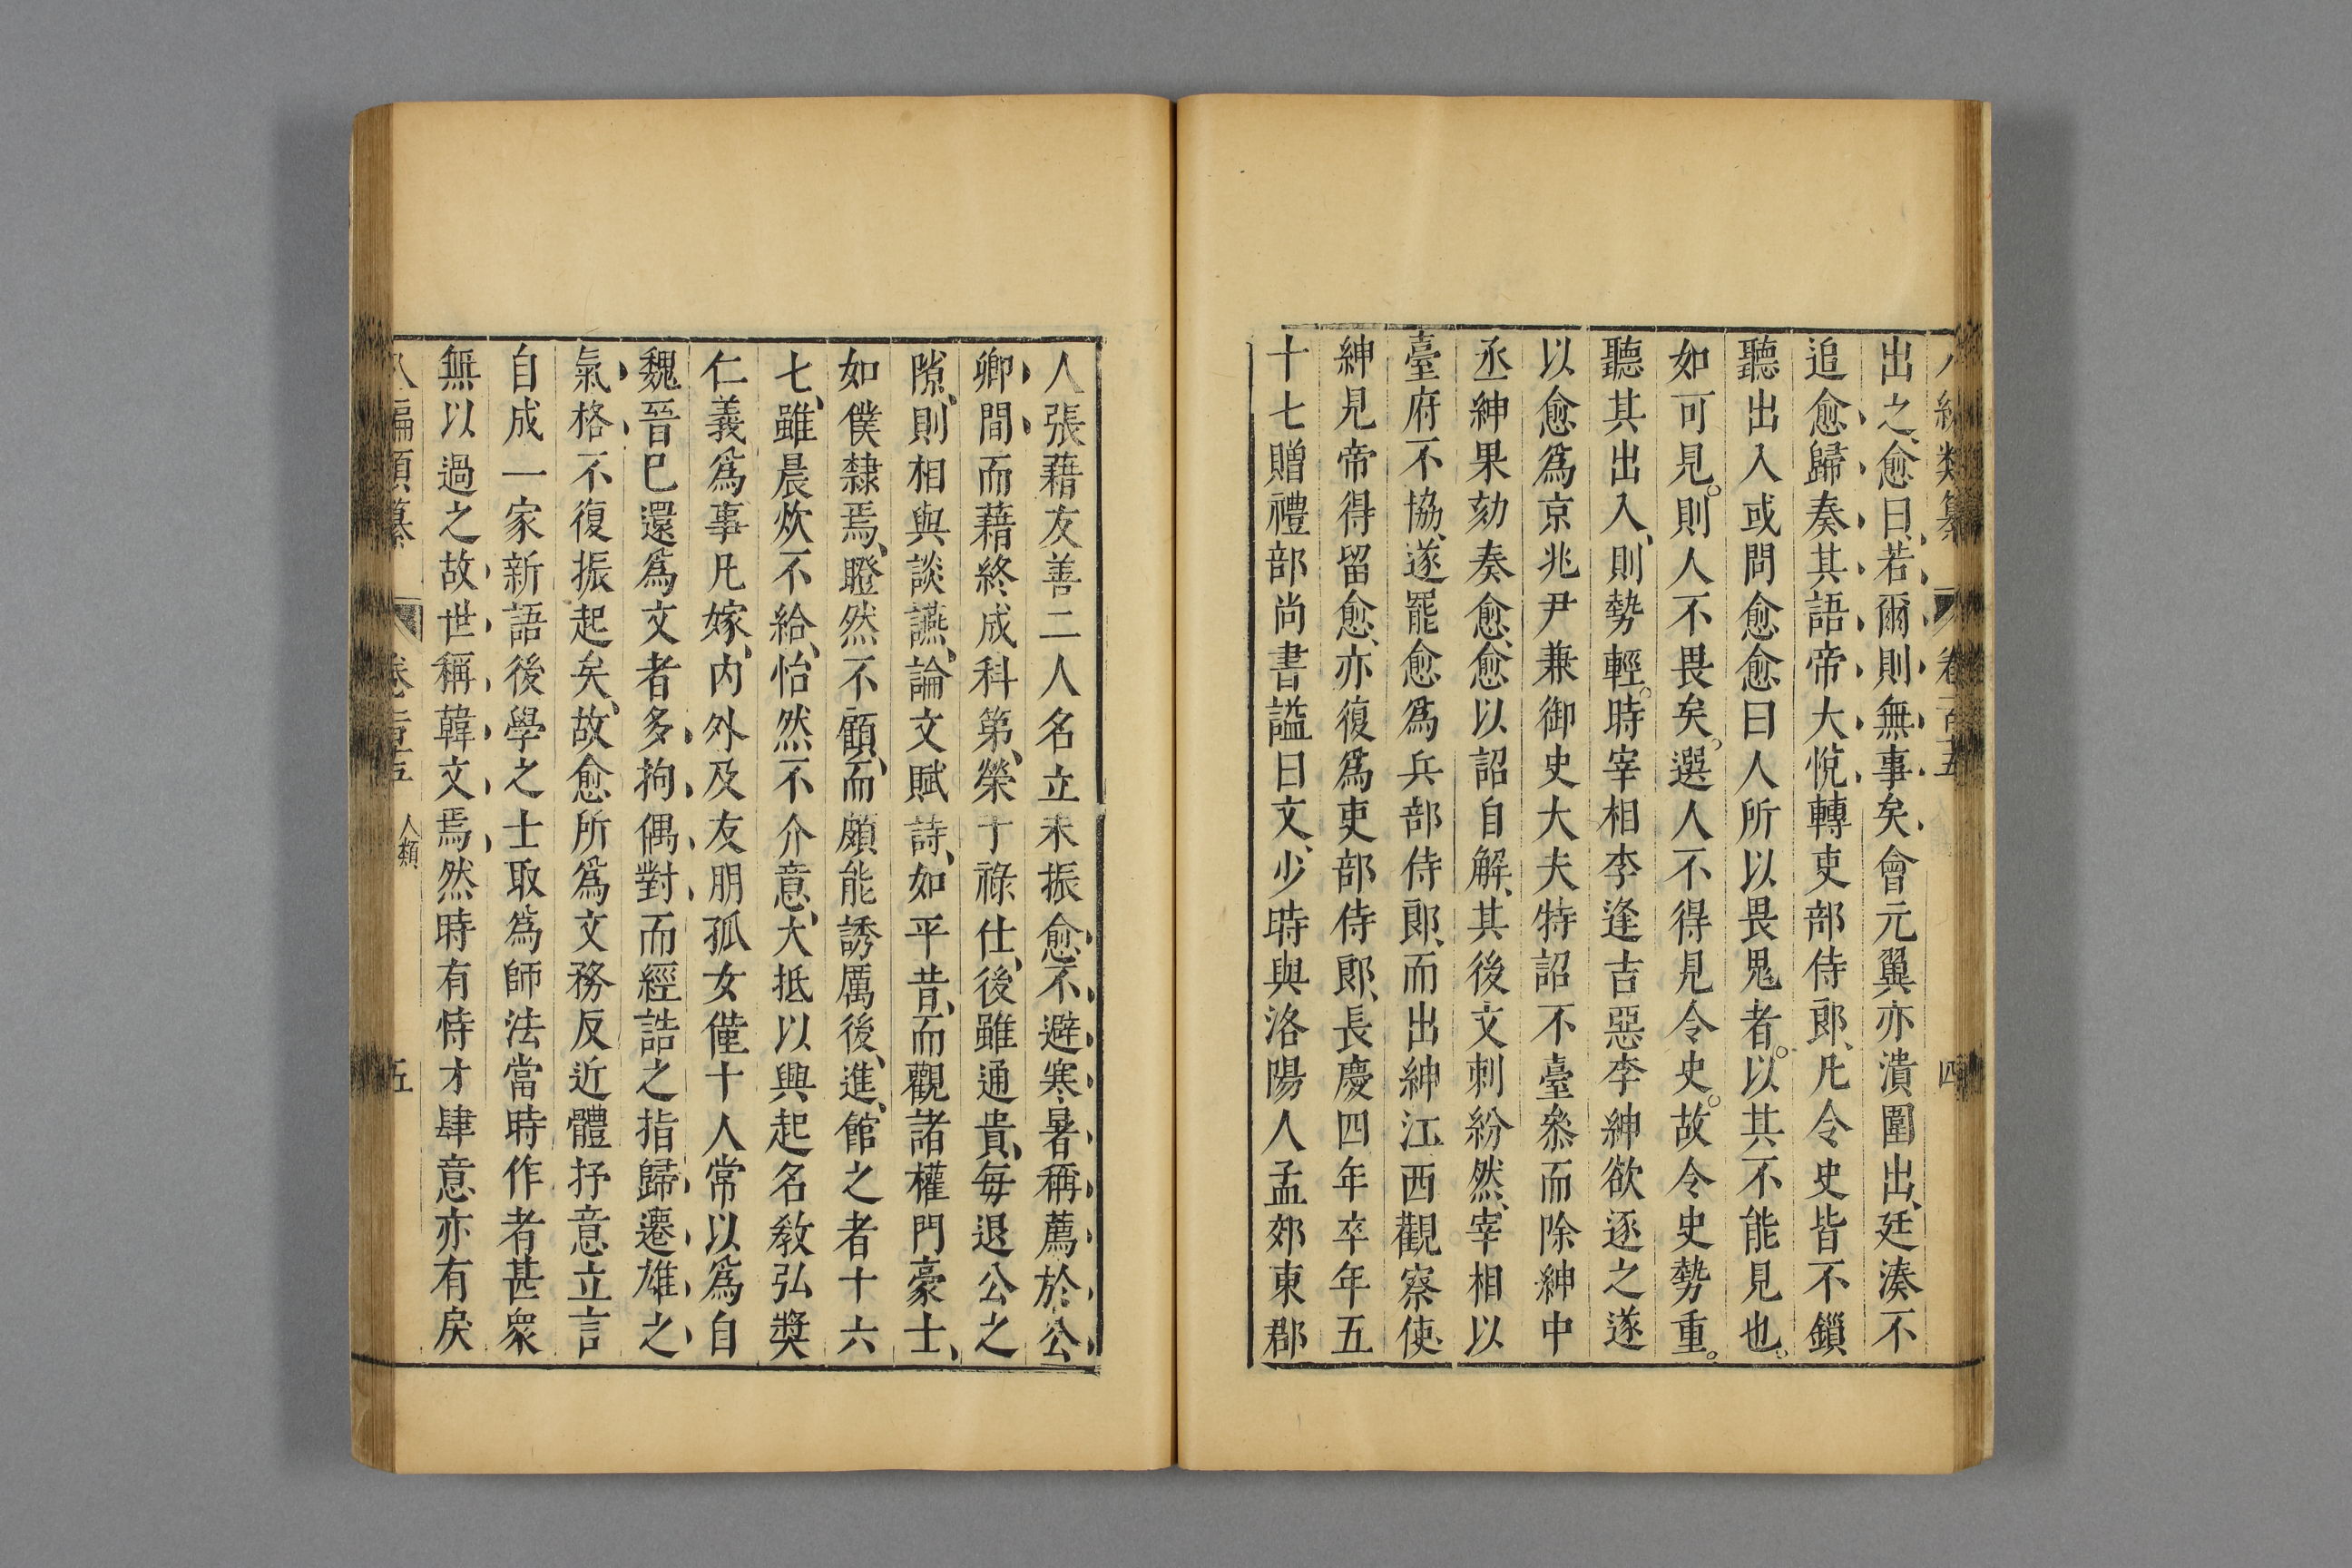 類纂 卷一百五 四
出之愈曰若爾則無事矣會元翼亦潰圍出廷湊不
追愈歸奏其語帝大悅轉吏部侍郎凡令史皆不鎖
聽出入或問愈愈曰人所以畏鬼者以其不能見也
如可見則人不畏矣選人不得見令史故令史勢重
聽其出入則勢輕時宰相李逢吉惡李紳欲逐之遂
以愈爲京兆尹兼御史大夫特詔不臺參而除紳中
丞紳果劾奏愈愈以詔自解其後文刺紛然宰相以
臺府不協遂罷愈爲兵部侍郎而出紳江西觀察使
紳見帝得留愈亦復爲吏部侍郎長慶四年卒年五
十七贈禮部尚書謚曰文少時與洛陽人孟郊東郡
人張藉友善二人名立未振愈不避寒暑稱薦於公
卿間而藉終成科第榮于祿仕後雖通貴每退公之
隙則相與談讌論文賦詩如平昔而觀諸權門豪士
如僕隸焉瞪然不顧而頗能誘厲後進館之者十六
七雖晨炊不給怡然不介意大抵以興起名教弘奬
仁義爲事凡嫁內外及友朋孤女僅十人常以爲自
魏晉已還爲文者多拘偶對而經誥之指歸遷雄之
氣格不復振起矣故愈所爲文務反近體抒意立言
自成一家新語後學之士取爲師法當時作者甚衆
無以過之故世稱韓文焉然時有恃才肆意亦有戾
八編類纂 卷一百五 人類 五